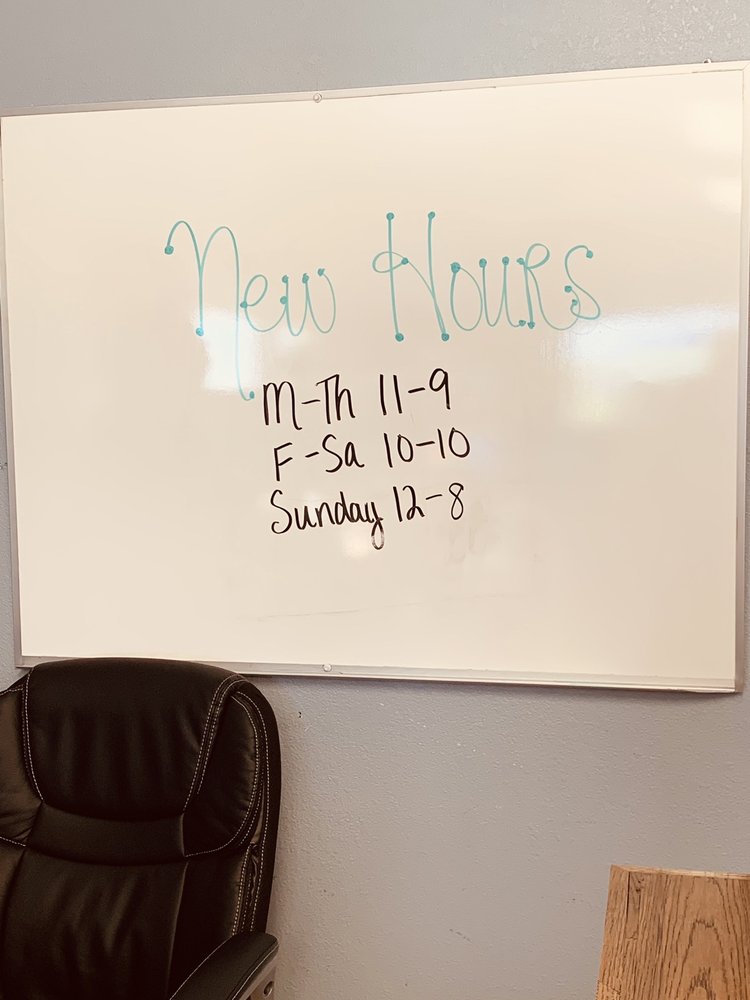 New Hours
M-Th 11-9
F-Sa 10-10
Sunday 12-8